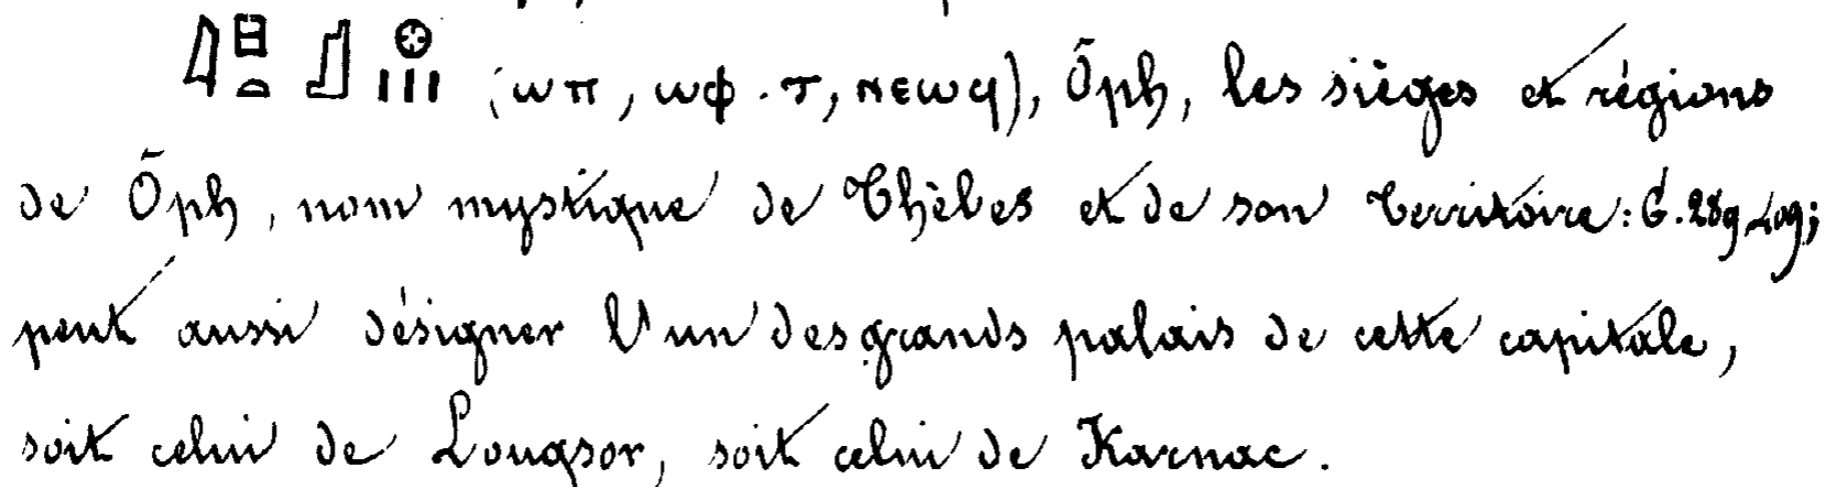 (ωπ, ωφ.τ, ⲛⲉⲱϥ), Ōph, les sièges et régions
de Ōph, nom mystique de Thèbes et de son territoire: G. 289, 409;
peut aussi désigner l'un des grands palais de cette capitale,
soit celui de Louqsor, soit celui de Karnac.